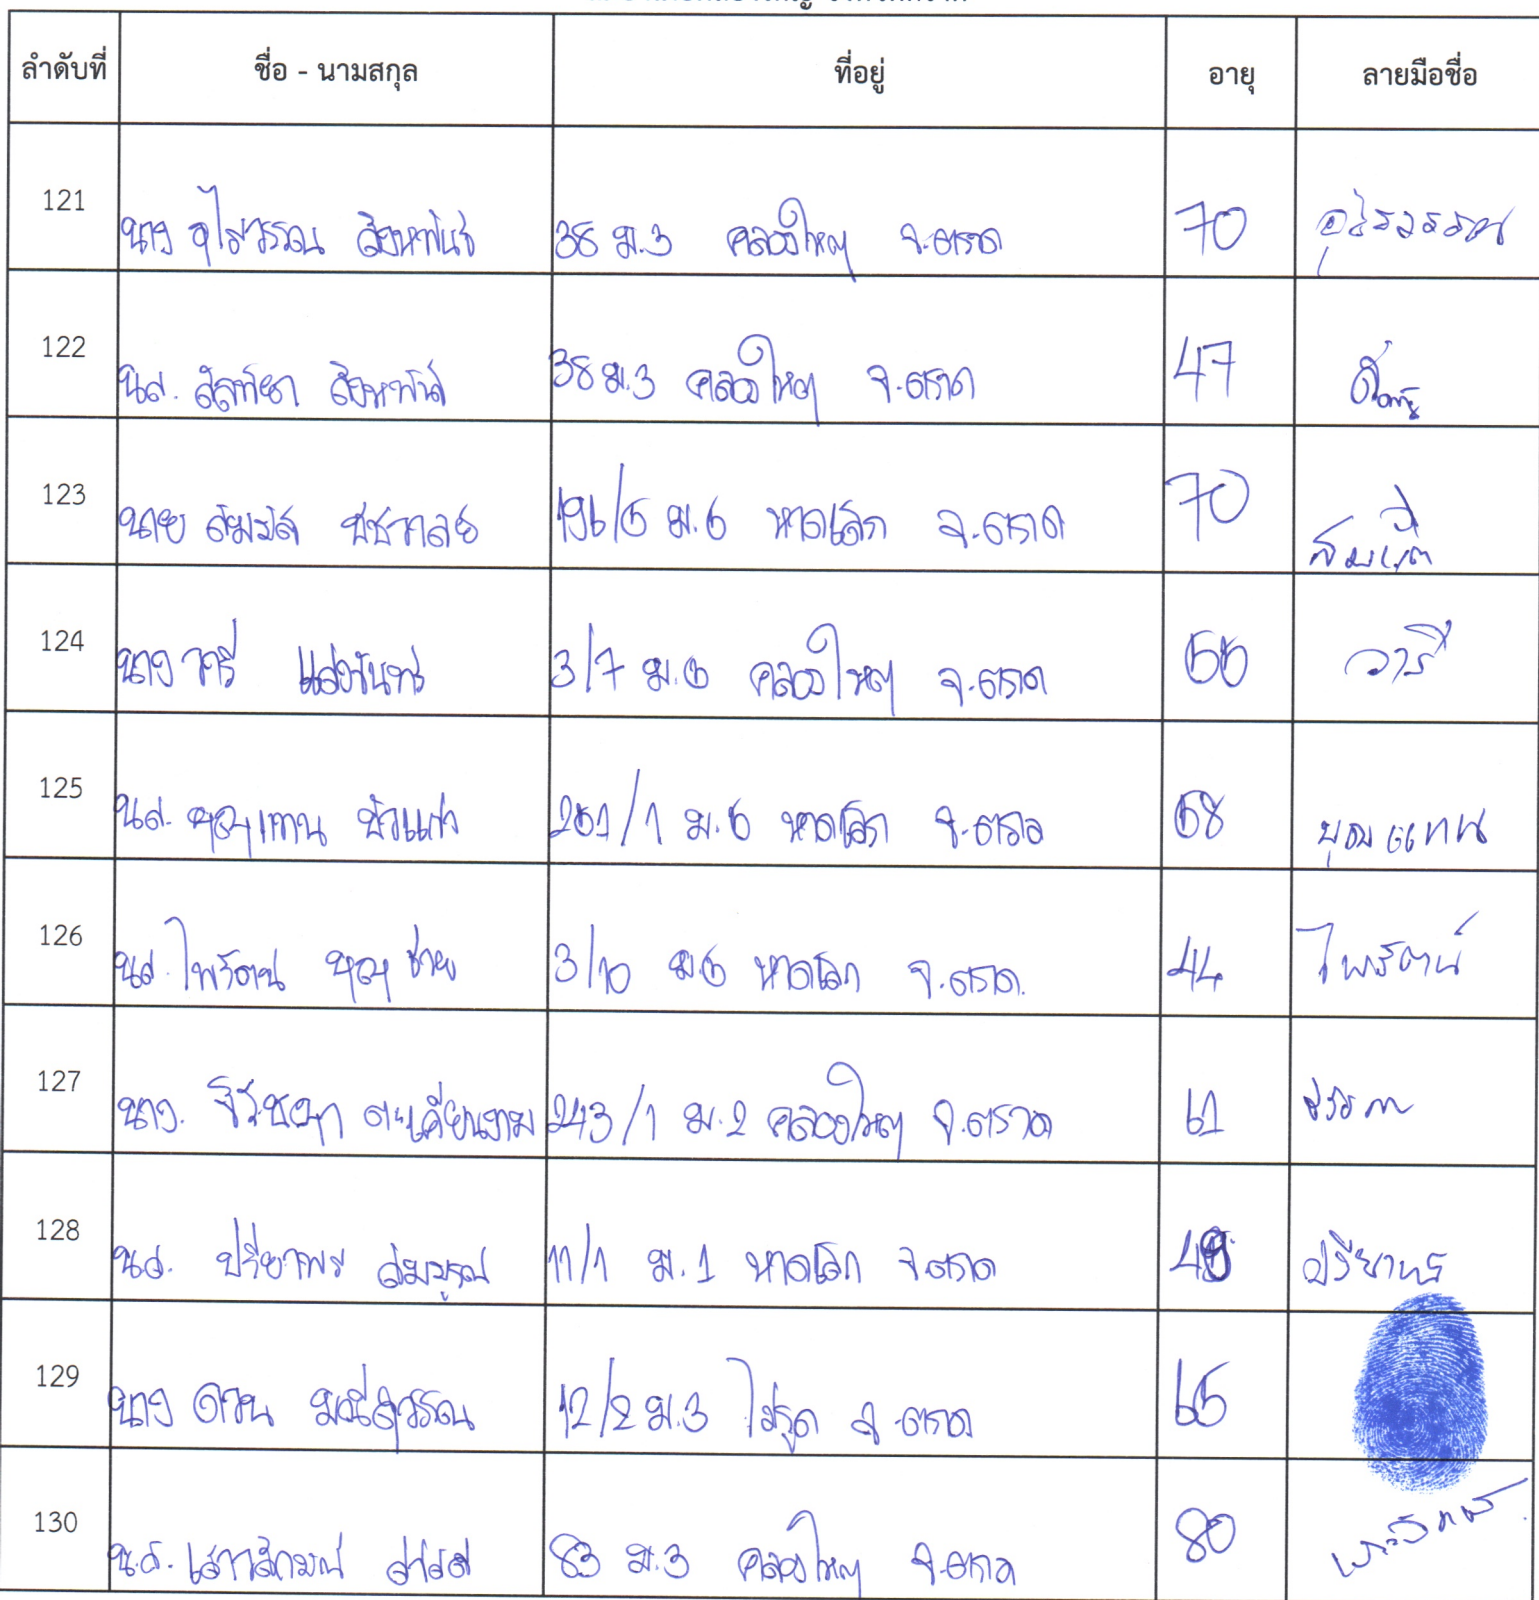 ลำดับที่ ชื่อ - นามสกุล ที่อยู่ อายุ ลายมือชื่อ
121 นาง อุไรวรรณ สิงหพันธ์ 38 ม.3 คลองใหญ่ จ.ตราด 70 อุไรวรรณ
122 นส. สิงหพันธ์ 38 ม.3 คลองใหญ่ จ.ตราด 47
123 นาย 196/5 ม.6 หาดเล็ก จ.ตราด 70
124 นาง วารี แสงจันทร์ 3/7 ม.6 คลองใหญ่ จ.ตราด วารี
125 นส. บุญแทน บัวแก้ว 261/1 ม.6 หาดเล็ก จ.ตราด 68 บุญแทน
126 นส. ไพรัตน์ บุญช่วย 3/10 ม.6 หาดเล็ก จ.ตราด. 44 ไพรัตน์
127 นาง. ตะเคียนงาม 243/1 ม.2 คลองใหญ่ จ.ตราด 61
128 นส. ปรียาพร สมบูรณ์ 11/1 ม.1 หาดเล็ก จ.ตราด ปรียาพร
129 นาง ดวน มณีสุวรรณ 12/2 ม.3 ไม้รูด จ.ตราด 65
130 น.ส. เสาวลักษณ์ 83 ม.3 คลองใหญ่ จ.ตราด 80